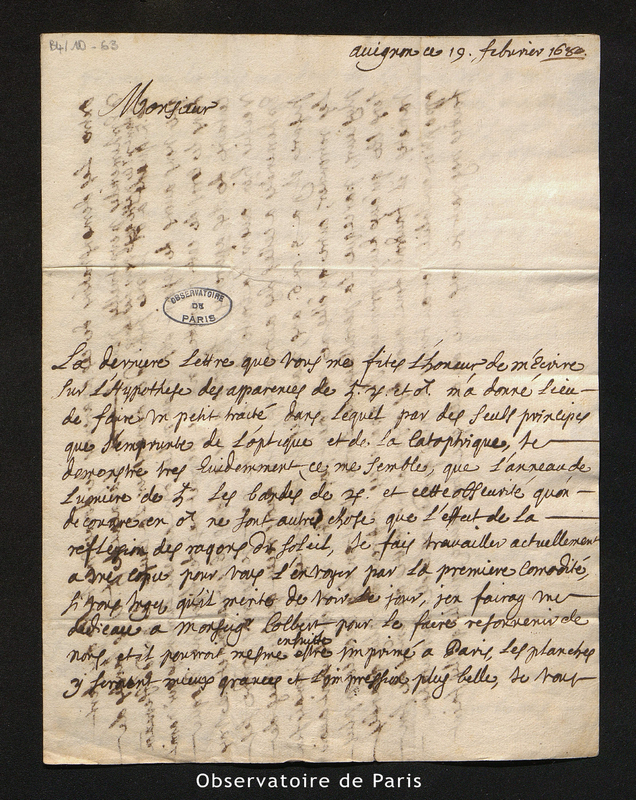 B4/10-63
avignon ce 19. febvrier 1682.
Monsieur
OBSERVATOIRE
DE
PARIS
La derniere Lettre que vous me fites L'honeur de m'Ecrire
sur L'Hypothese des apparences de ♄. ♃ et ♂. m'a donné Lieu
de faire un petit traité dans Lequel par des seuls principes
que J'emprunte de L'optique et de La Catoptrique, Je
demonstre tres Evidemment ce me semble, que L'anneau de
Lumiere de ♄ Les bandes de ♃. et cette obscurité qu'on
decouvre en ♂ ne sont autre chose que L'effet de La
reflexion des rayons du soleil, Je fais travailler actuellement
a une copie pour vous L'envoyer par La premiere Comodité,
si vous Jugez qu'il merite de voir Le jour, j'en fairay une
dedicace a Monseigr Colbert pour Le faire resouvenir de
nous, et il pourroit mesme ensuitte estre imprimé a Paris, Les planches
y seroient mieux gravées et L'impression plus belle, Je vous
Observatoire de Paris